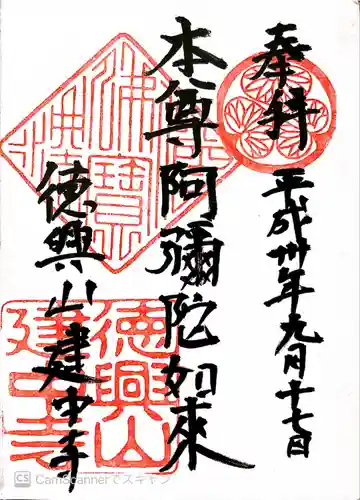 奉拝
平成卅年九月十七日
本尊阿彌陀如來
徳興山建中寺
佛法僧寶
徳興山建中寺
CS CamScannerでスキャン